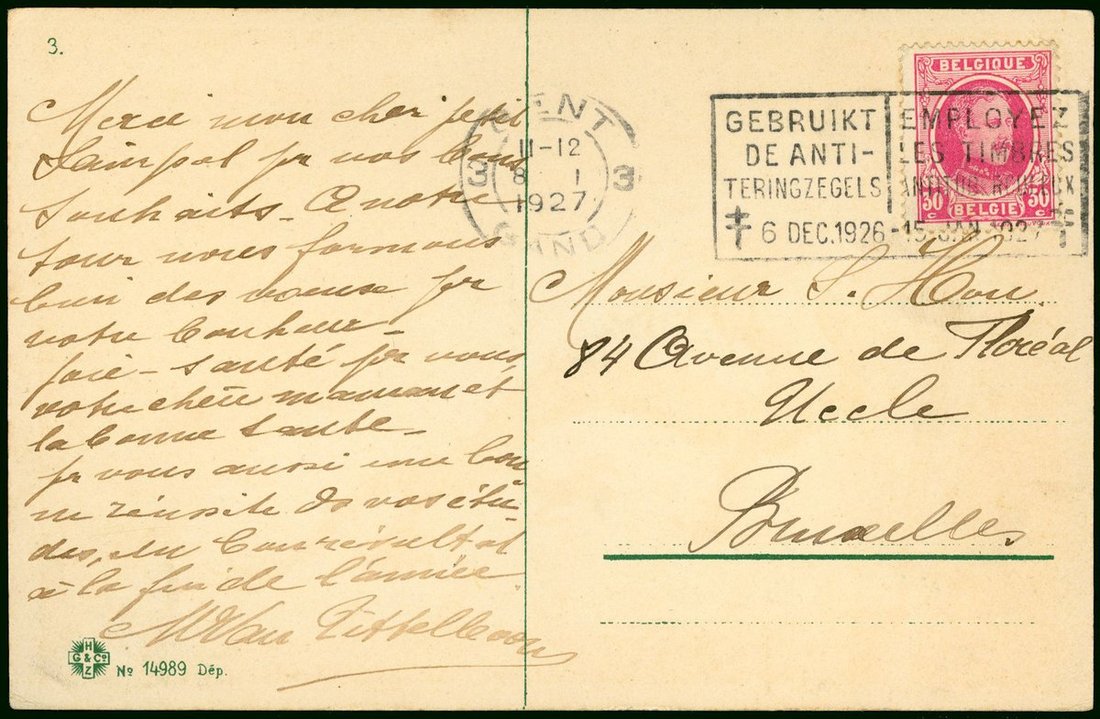 3.
Merci mon cher petit
pr vos bons
souhaits. A notre
tour nous formons
bien des voeux pr
votre bonheur
joie - santé pr vous
votre chère maman et
la bonne santé.
pr vous aussi une bon
ne réussite ds vos étu-
des, un bon résultat
à la fin de l'année.
M Van
H
G & Co
Z
No 14989 Dép.
GENT
11-12
3 8 1 3
1927
GAND
GEBRUIKT
DE ANTI-
TERINGZEGELS
EMPLOYEZ
LES TIMBRES
ANTITUBERCULEUX
6 DEC.1926 - 15 JAN.1927
BELGIQUE
50 50
c c
BELGIË
Monsieur S. Hou.
84 Avenue de Floréal
Uccle
Bruxelles